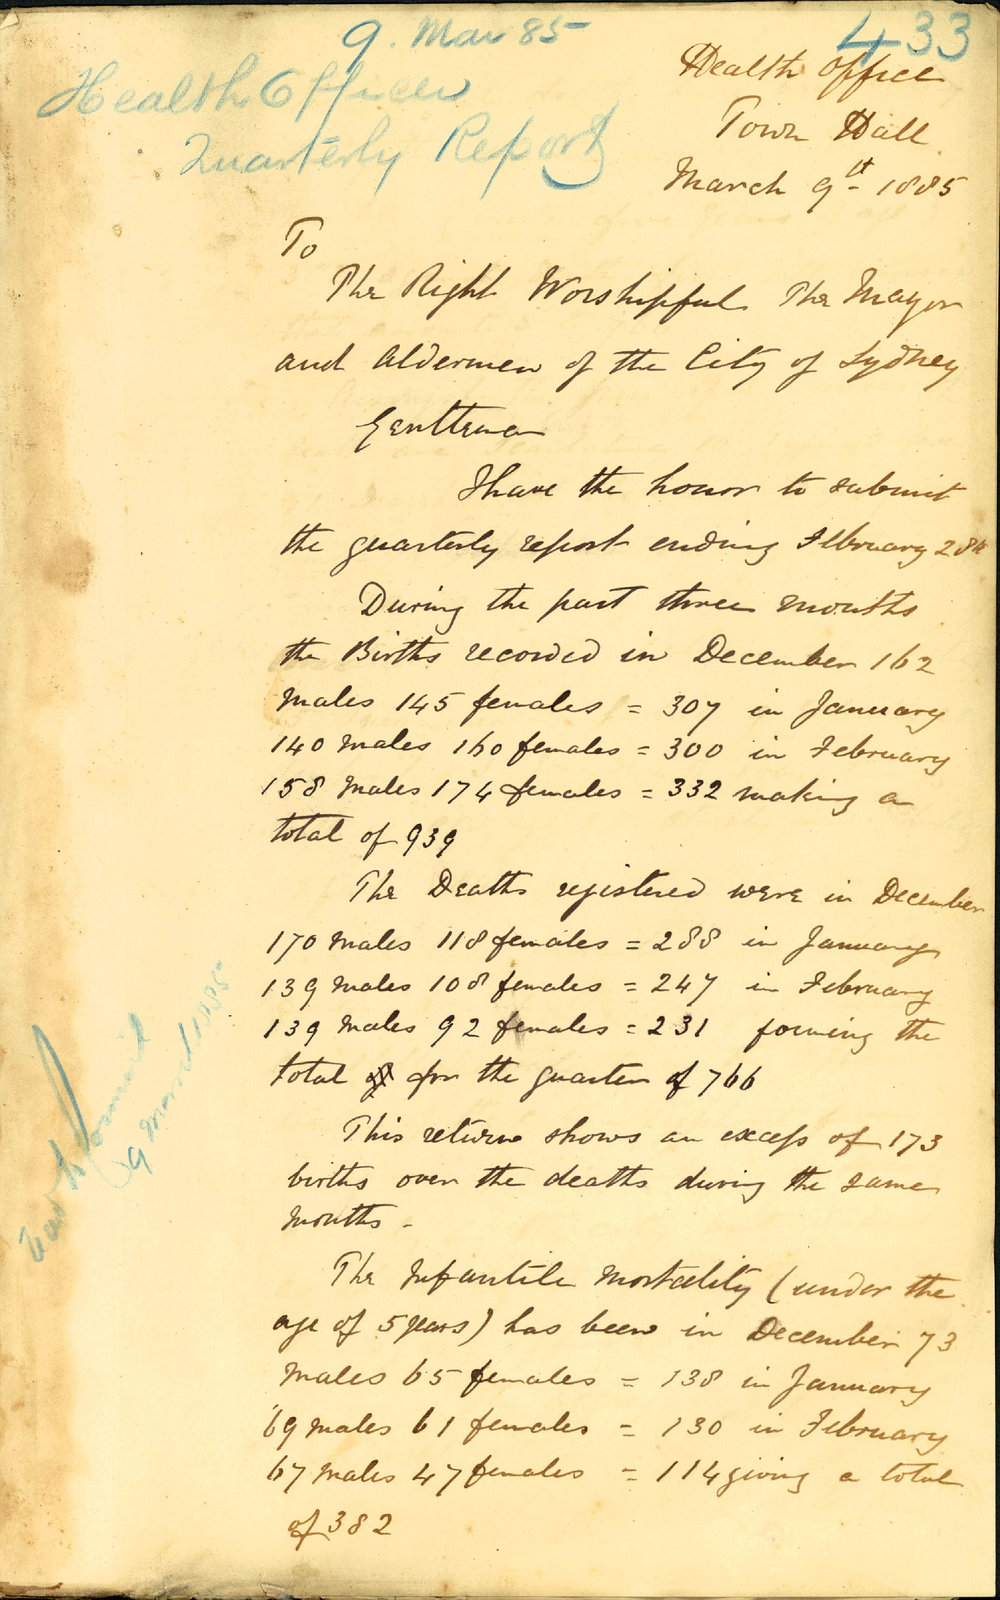 9. Mar 85
433
Health Officer
Quarterly Report
Health Office
Town Hall
March 9th 1885
To
The Right Worshipful The Mayor
and Aldermen of the City of Sydney
Gentlemen
I have the honor to submit
the quarterly report ending February 28th
During the past three months
the Births recorded in December 162
Males 145 females = 307 in January
140 Males 160 females = 300 in February
158 Males 174 females = 332 making a
total of 939
The Deaths registered were in December
170 Males 118 females = 288 in January
139 Males 108 females = 247 in February
139 Males 92 females = 231 forming the
total of for the quarter of 766
This return shows an excess of 173
births over the deaths during the same
Months -
The Infantile Mortality (under the
age of 5 years) has been in December 73
Males 65 females = 138 in January
69 Males 61 females = 130 in February
67 Males 47 females = 114 giving a total
of 382
9 March 1885